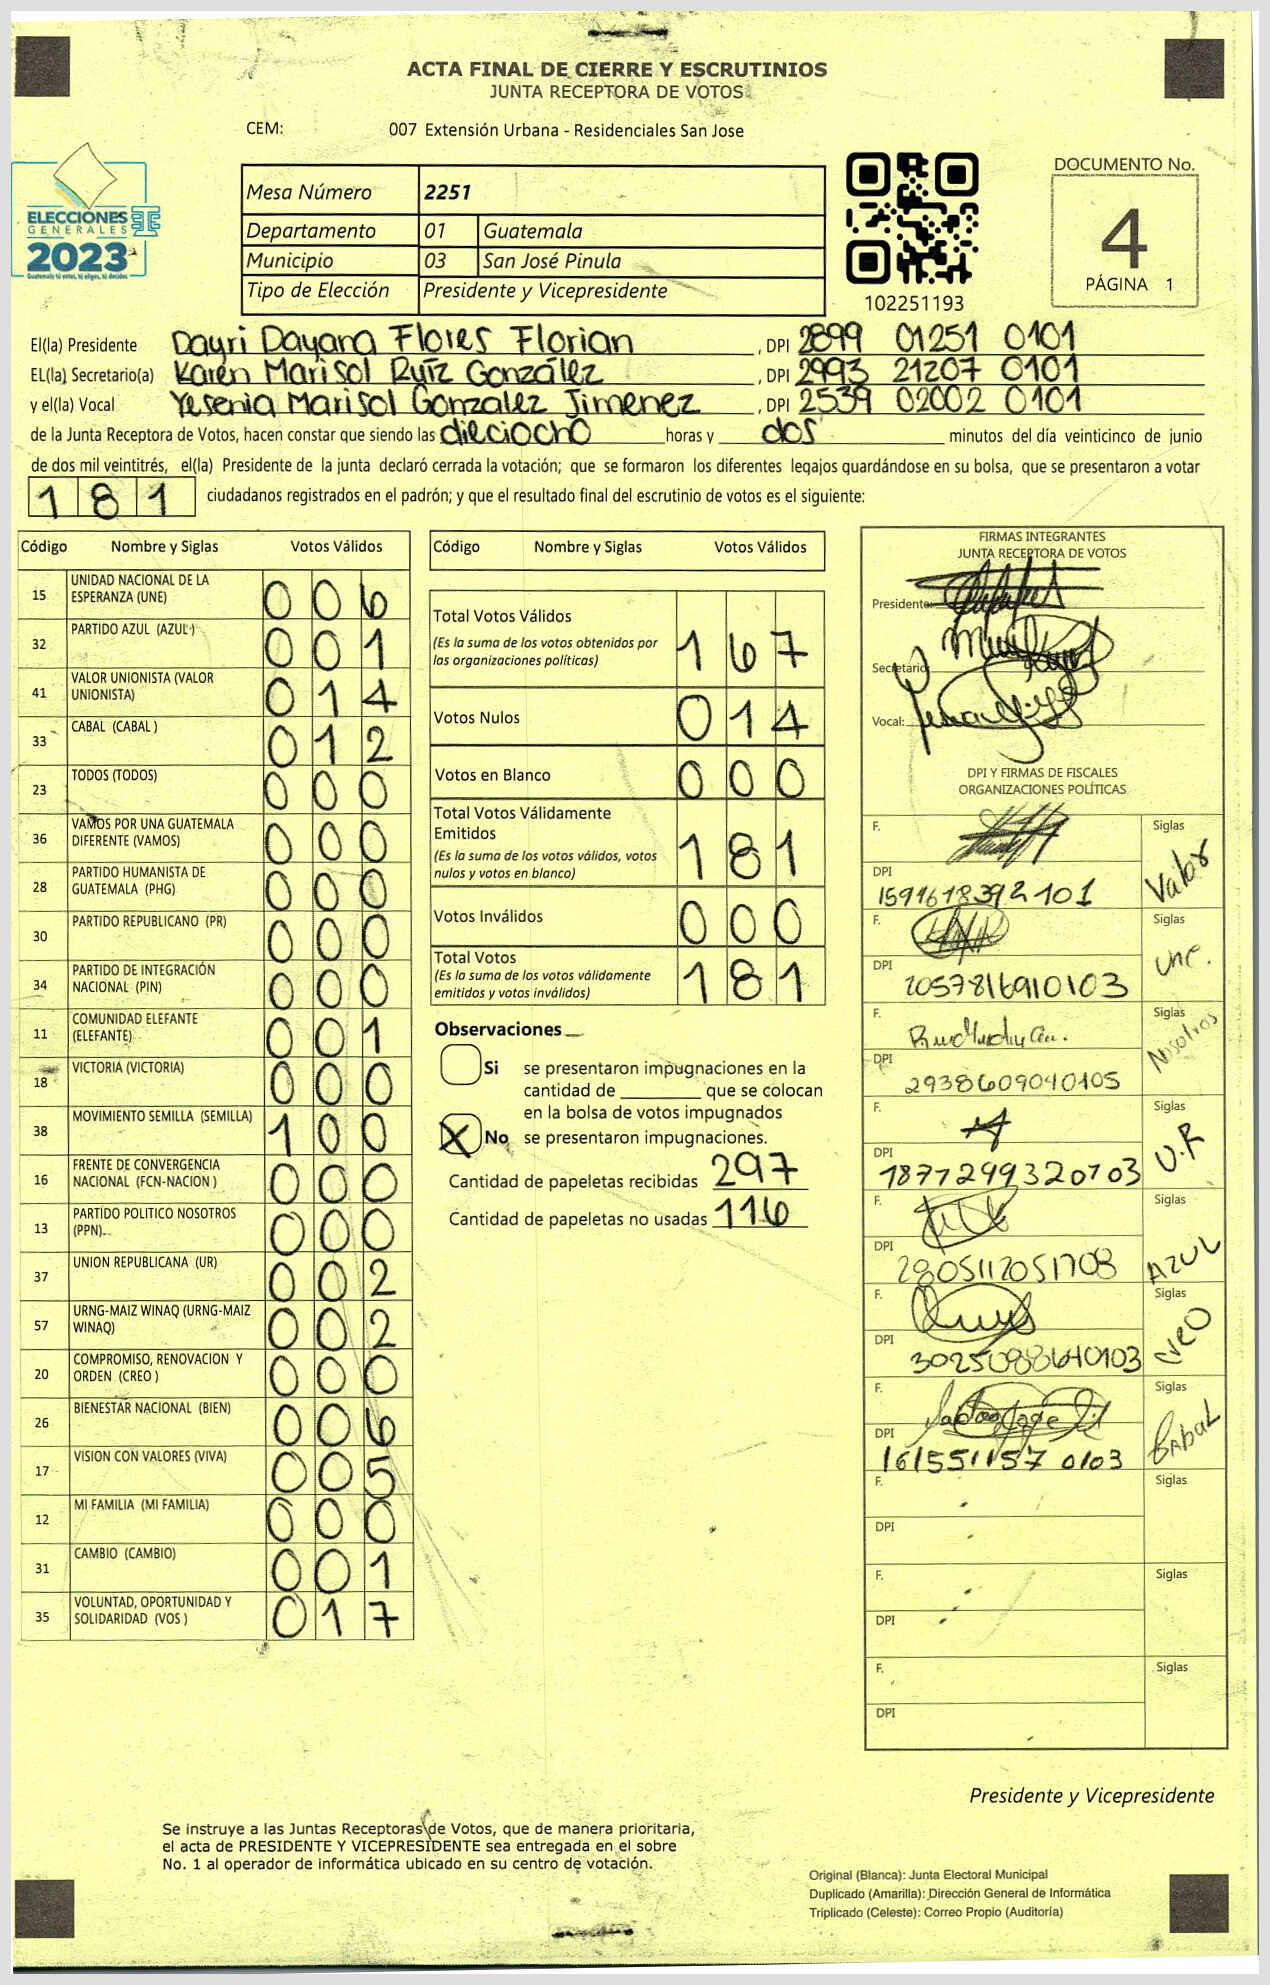 ACTA FINAL DE CIERRE Y ESCRUTINIOS
JUNTA RECEPTORA DE VOTOS
CEM: 007 Extensión Urbana - Residenciales San Jose
ELECCIONES
GENERALES
2023
Guatemala tú votas, tú eliges, tú decides
Mesa Número 2251
Departamento 01 Guatemala
Municipio 03 San José Pinula
Tipo de Elección Presidente y Vicepresidente
102251193
DOCUMENTO No.
4
PÁGINA 1
El(la) Presidente Dayri Dayana Flores Florian, DPI 2899 01251 0101
EL(la) Secretario(a) Karen Marisol Ruíz González, DPI 2993 21207 0101
y el(la) Vocal Yesenia Marisol Gonzalez Jimenez, DPI 2539 02002 0101
de la Junta Receptora de Votos, hacen constar que siendo las dieciocho horas y dos minutos del día veinticinco de junio
de dos mil veintitrés, el(la) Presidente de la junta declaró cerrada la votación; que se formaron los diferentes legajos guardándose en su bolsa, que se presentaron a votar
181 ciudadanos registrados en el padrón; y que el resultado final del escrutinio de votos es el siguiente:
Código Nombre y Siglas Votos Válidos
15 UNIDAD NACIONAL DE LA ESPERANZA (UNE) 006
32 PARTIDO AZUL (AZUL) 001
41 VALOR UNIONISTA (VALOR UNIONISTA) 014
33 CABAL (CABAL) 012
23 TODOS (TODOS) 000
36 VAMOS POR UNA GUATEMALA DIFERENTE (VAMOS) 000
28 PARTIDO HUMANISTA DE GUATEMALA (PHG) 000
30 PARTIDO REPUBLICANO (PR) 000
34 PARTIDO DE INTEGRACIÓN NACIONAL (PIN) 000
11 COMUNIDAD ELEFANTE (ELEFANTE) 001
18 VICTORIA (VICTORIA) 000
38 MOVIMIENTO SEMILLA (SEMILLA) 100
16 FRENTE DE CONVERGENCIA NACIONAL (FCN-NACION) 000
13 PARTIDO POLITICO NOSOTROS (PPN) 000
37 UNION REPUBLICANA (UR) 002
57 URNG-MAIZ WINAQ (URNG-MAIZ WINAQ) 002
20 COMPROMISO, RENOVACION Y ORDEN (CREO) 000
26 BIENESTAR NACIONAL (BIEN) 006
17 VISION CON VALORES (VIVA) 005
12 MI FAMILIA (MI FAMILIA) 000
31 CAMBIO (CAMBIO) 001
35 VOLUNTAD, OPORTUNIDAD Y SOLIDARIDAD (VOS) 017
Código Nombre y Siglas Votos Válidos
Total Votos Válidos 167
(Es la suma de los votos obtenidos por
las organizaciones políticas)
Votos Nulos 014
Votos en Blanco 000
Total Votos Válidamente
Emitidos 181
(Es la suma de los votos válidos, votos
nulos y votos en blanco)
Votos Inválidos 000
Total Votos 181
(Es la suma de los votos válidamente
emitidos y votos inválidos)
Observaciones
Si se presentaron impugnaciones en la
cantidad de ________ que se colocan
en la bolsa de votos impugnados
X No se presentaron impugnaciones.
Cantidad de papeletas recibidas 297
Cantidad de papeletas no usadas 116
FIRMAS INTEGRANTES
JUNTA RECEPTORA DE VOTOS
Presidente:
Secretario:
Vocal:
DPI Y FIRMAS DE FISCALES
ORGANIZACIONES POLÍTICAS
F. Siglas Valor
DPI 1591618392101
F. Siglas Une.
DPI 2057816910103
F. Siglas Nosotros
DPI 2938609040105
F. Siglas U.R
DPI 1877299320103
F. Siglas AZUL
DPI 2805112051708
F. Siglas CreO
DPI 3025088640103
F. Siglas CABAL
DPI 1615511570103
F. Siglas
DPI
F. Siglas
DPI
F. Siglas
DPI
Presidente y Vicepresidente
Se instruye a las Juntas Receptoras de Votos, que de manera prioritaria,
el acta de PRESIDENTE Y VICEPRESIDENTE sea entregada en el sobre
No. 1 al operador de informática ubicado en su centro de votación.
Original (Blanca): Junta Electoral Municipal
Duplicado (Amarilla): Dirección General de Informática
Triplicado (Celeste): Correo Propio (Auditoría)